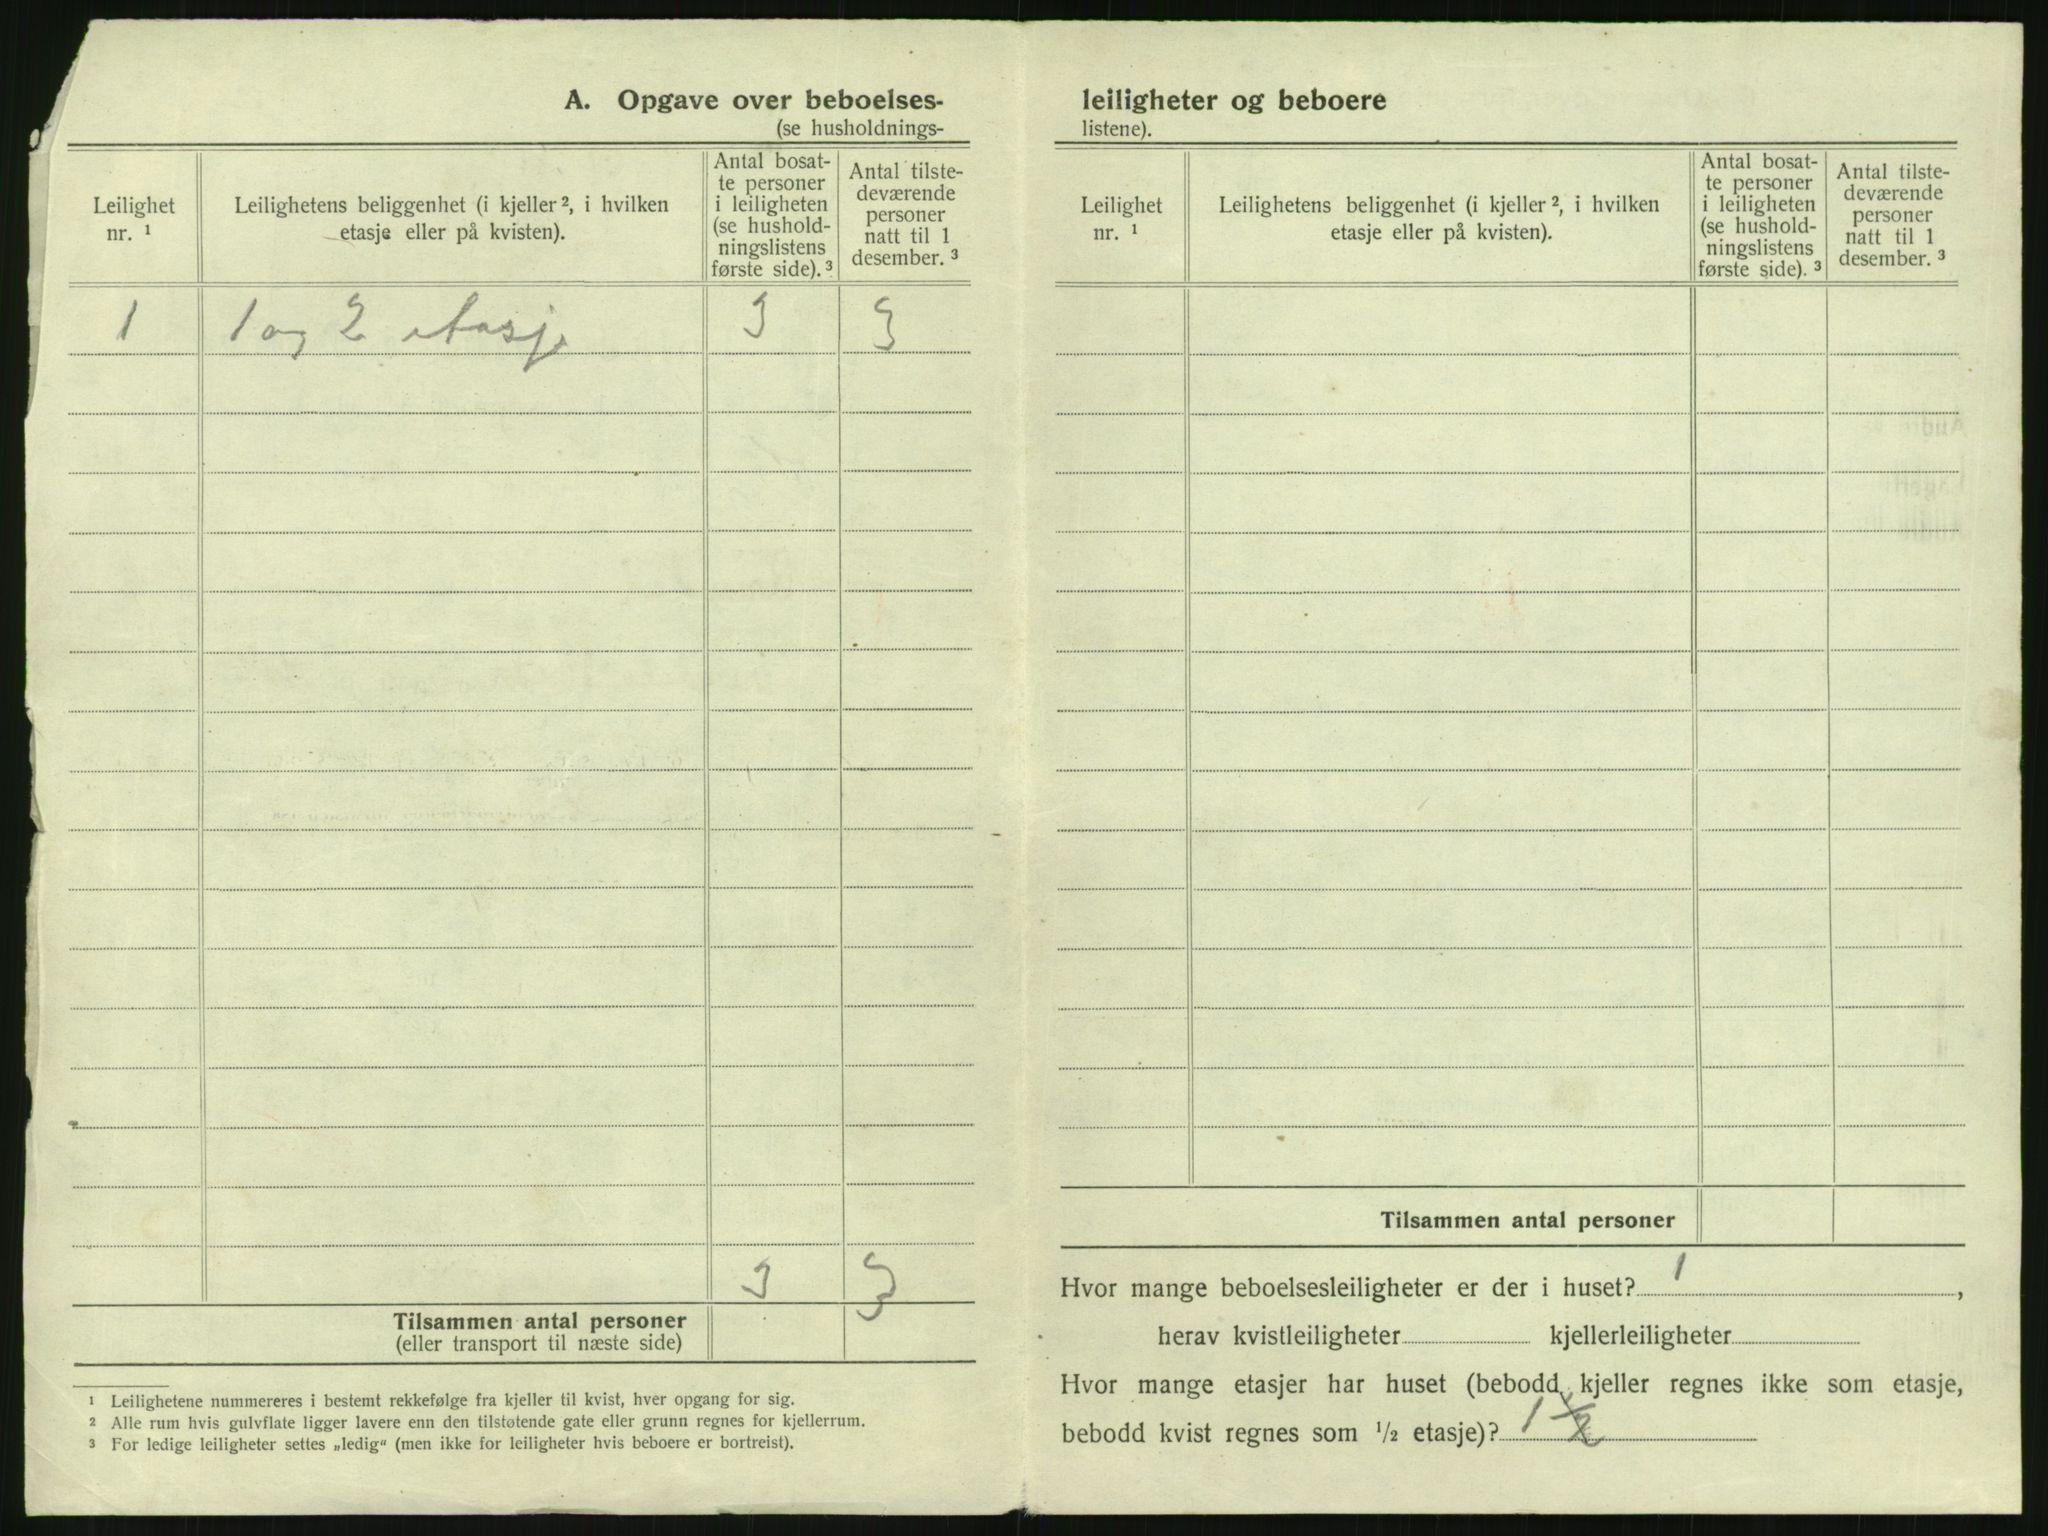 A. Opgave over beboelses-
(se husholdnings-
Leilighet
nr. ¹
Leilighetens beliggenhet (i kjeller ², i hvilken
etasje eller på kvisten).
Antal bosat-
te personer
i leiligheten
(se hushold-
ningslistens
første side). ³
Antal tilste-
deværende
personer
natt til 1
desember. ³
1 1 og 2 etasje 3 3
3 3
Tilsammen antal personer
(eller transport til næste side)
¹ Leilighetene nummereres i bestemt rekkefølge fra kjeller til kvist, hver opgang for sig.
² Alle rum hvis gulvflate ligger lavere enn den tilstøtende gate eller grunn regnes for kjellerrum.
³ For ledige leiligheter settes „ledig“ (men ikke for leiligheter hvis beboere er bortreist).
leiligheter og beboere
listene).
Leilighet
nr. ¹
Leilighetens beliggenhet (i kjeller ², i hvilken
etasje eller på kvisten).
Antal bosat-
te personer
i leiligheten
(se hushold-
ningslistens
første side). ³
Antal tilste-
deværende
personer
natt til 1
desember. ³
Tilsammen antal personer
Hvor mange beboelsesleiligheter er der i huset? 1,
herav kvistleiligheter kjellerleiligheter
Hvor mange etasjer har huset (bebodd kjeller regnes ikke som etasje,
bebodd kvist regnes som ½ etasje)? 1 ½